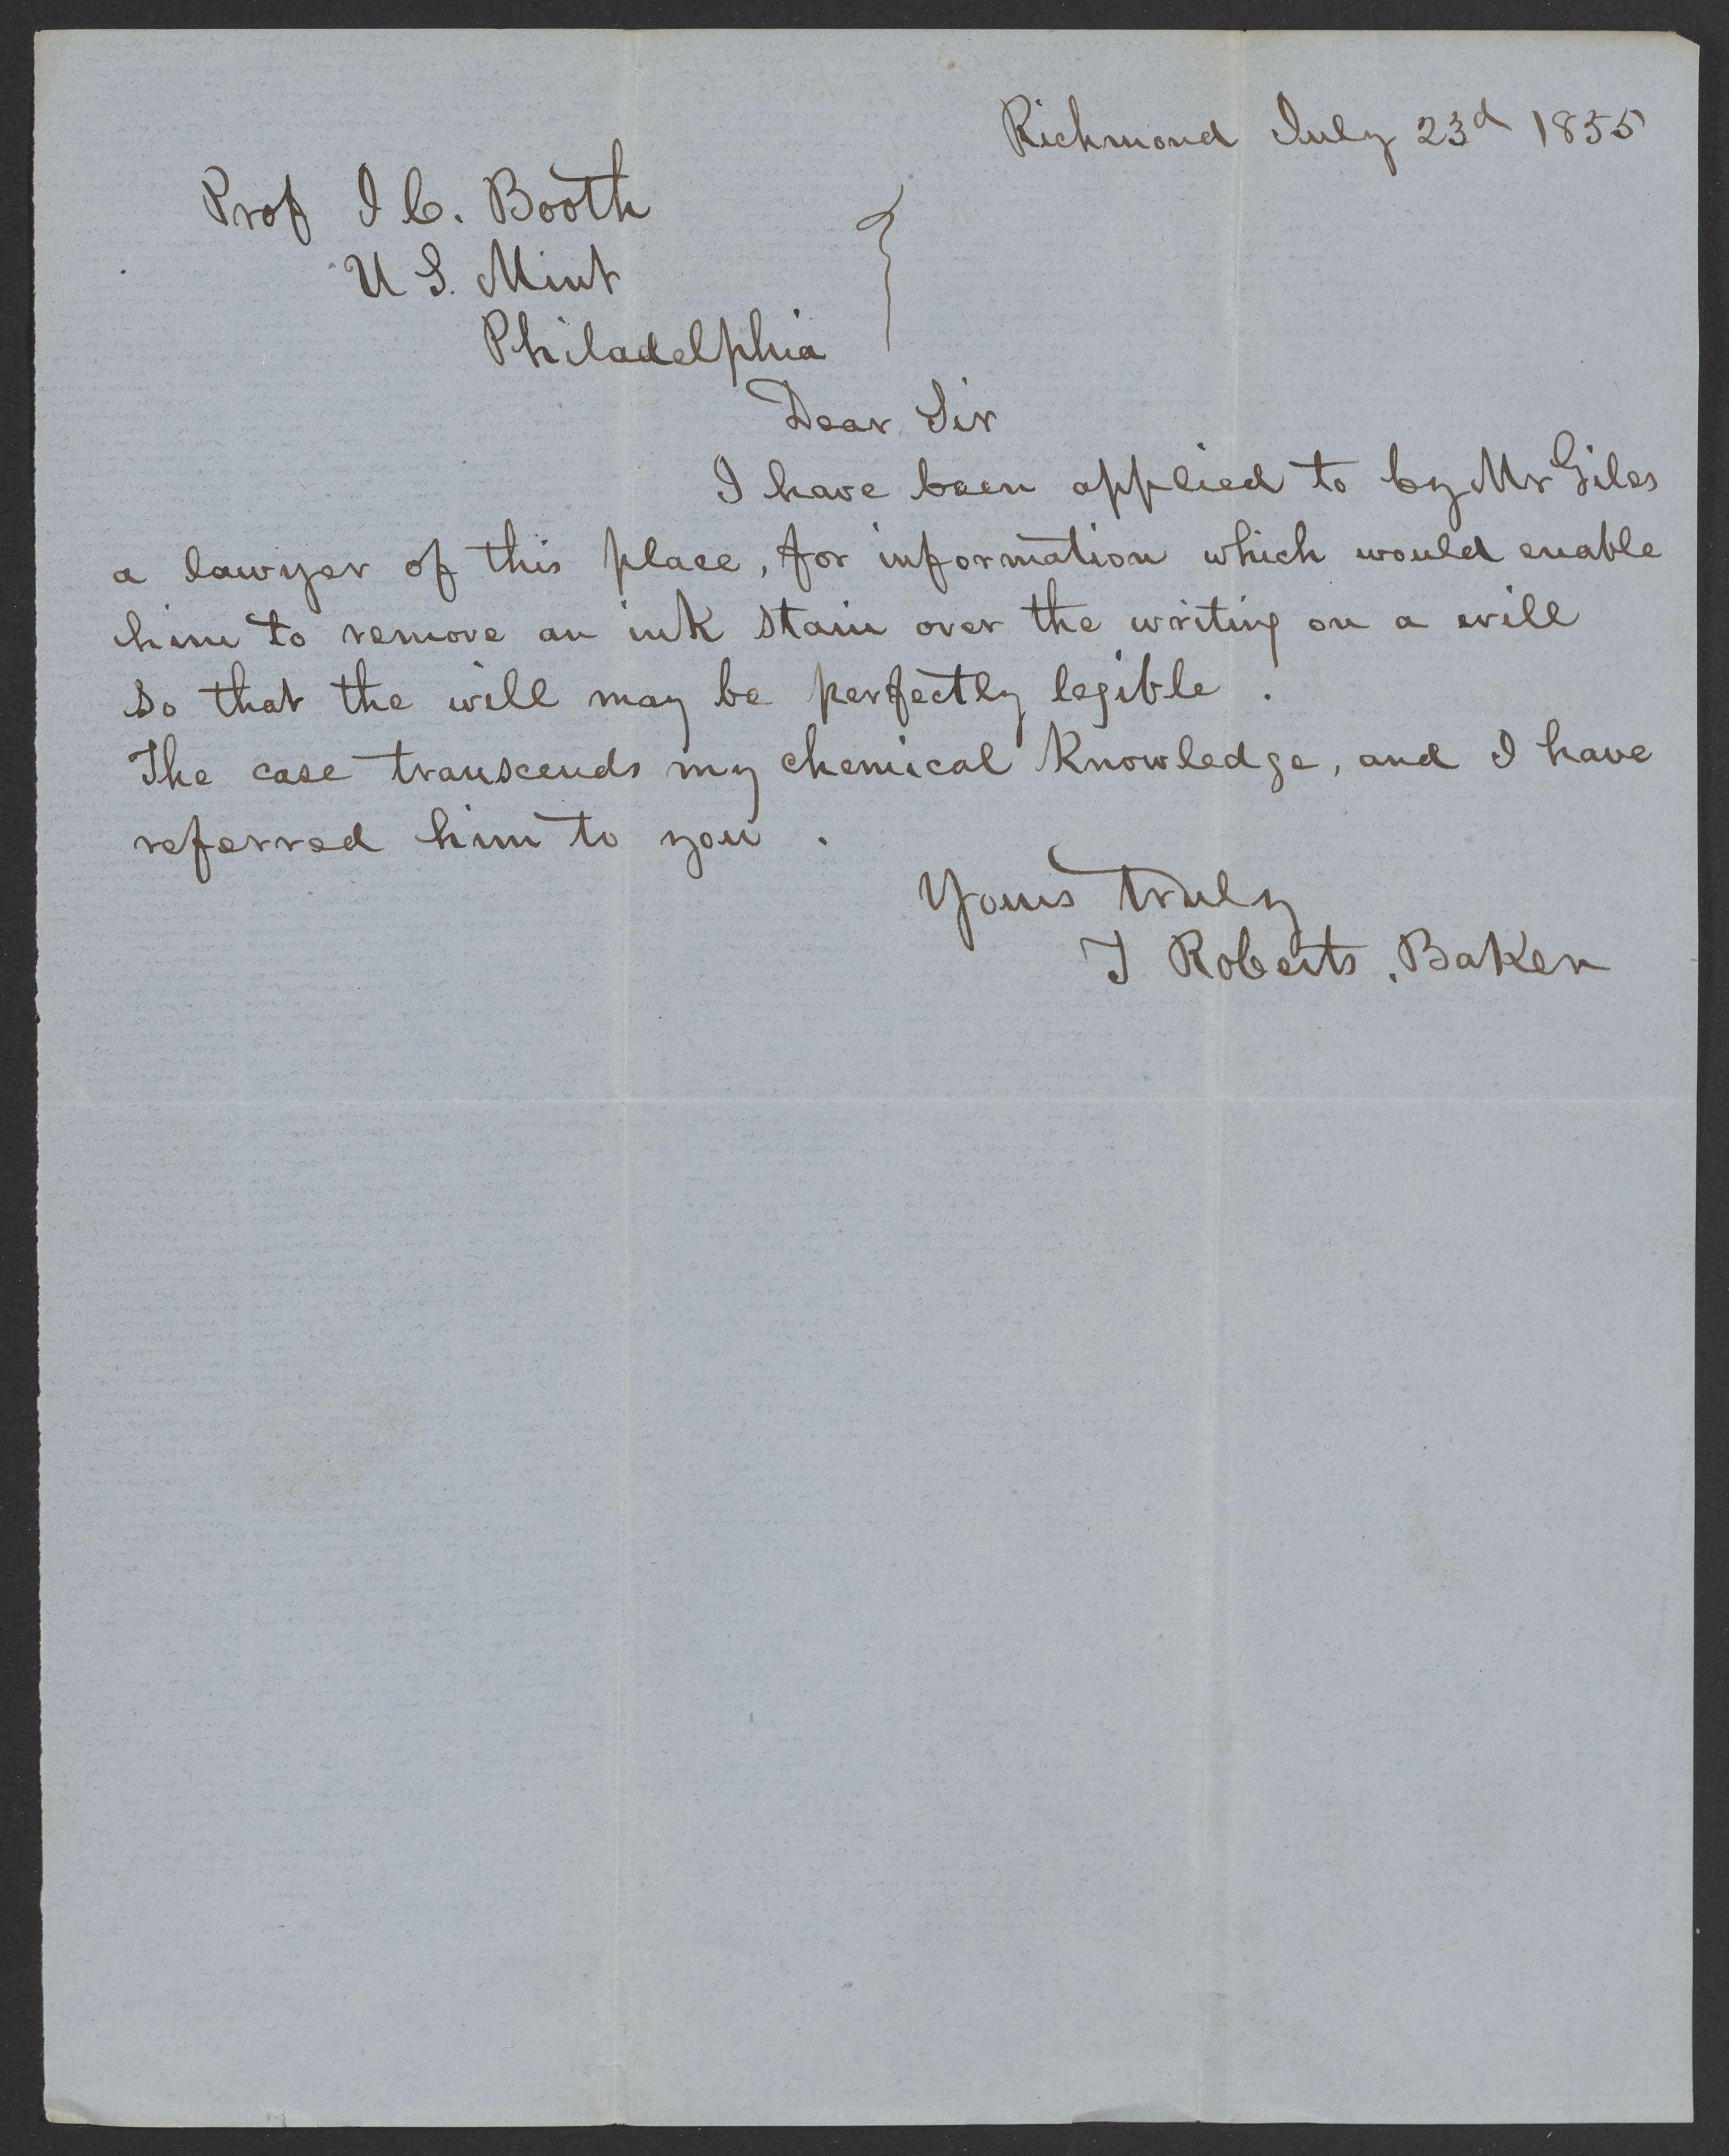 Richmond July 23d 1855
Prof J C. Booth
U S. Mint
Philadelphia
Dear Sir
I have been applied to by Mr Giles
a lawyer of this place, for information which would enable
him to remove an ink stain over the writing on a will
so that the will may be perfectly legible.
The case transcends my chemical Knowledge, and I have
referred him to you.
Yours truly
T Roberts Baker